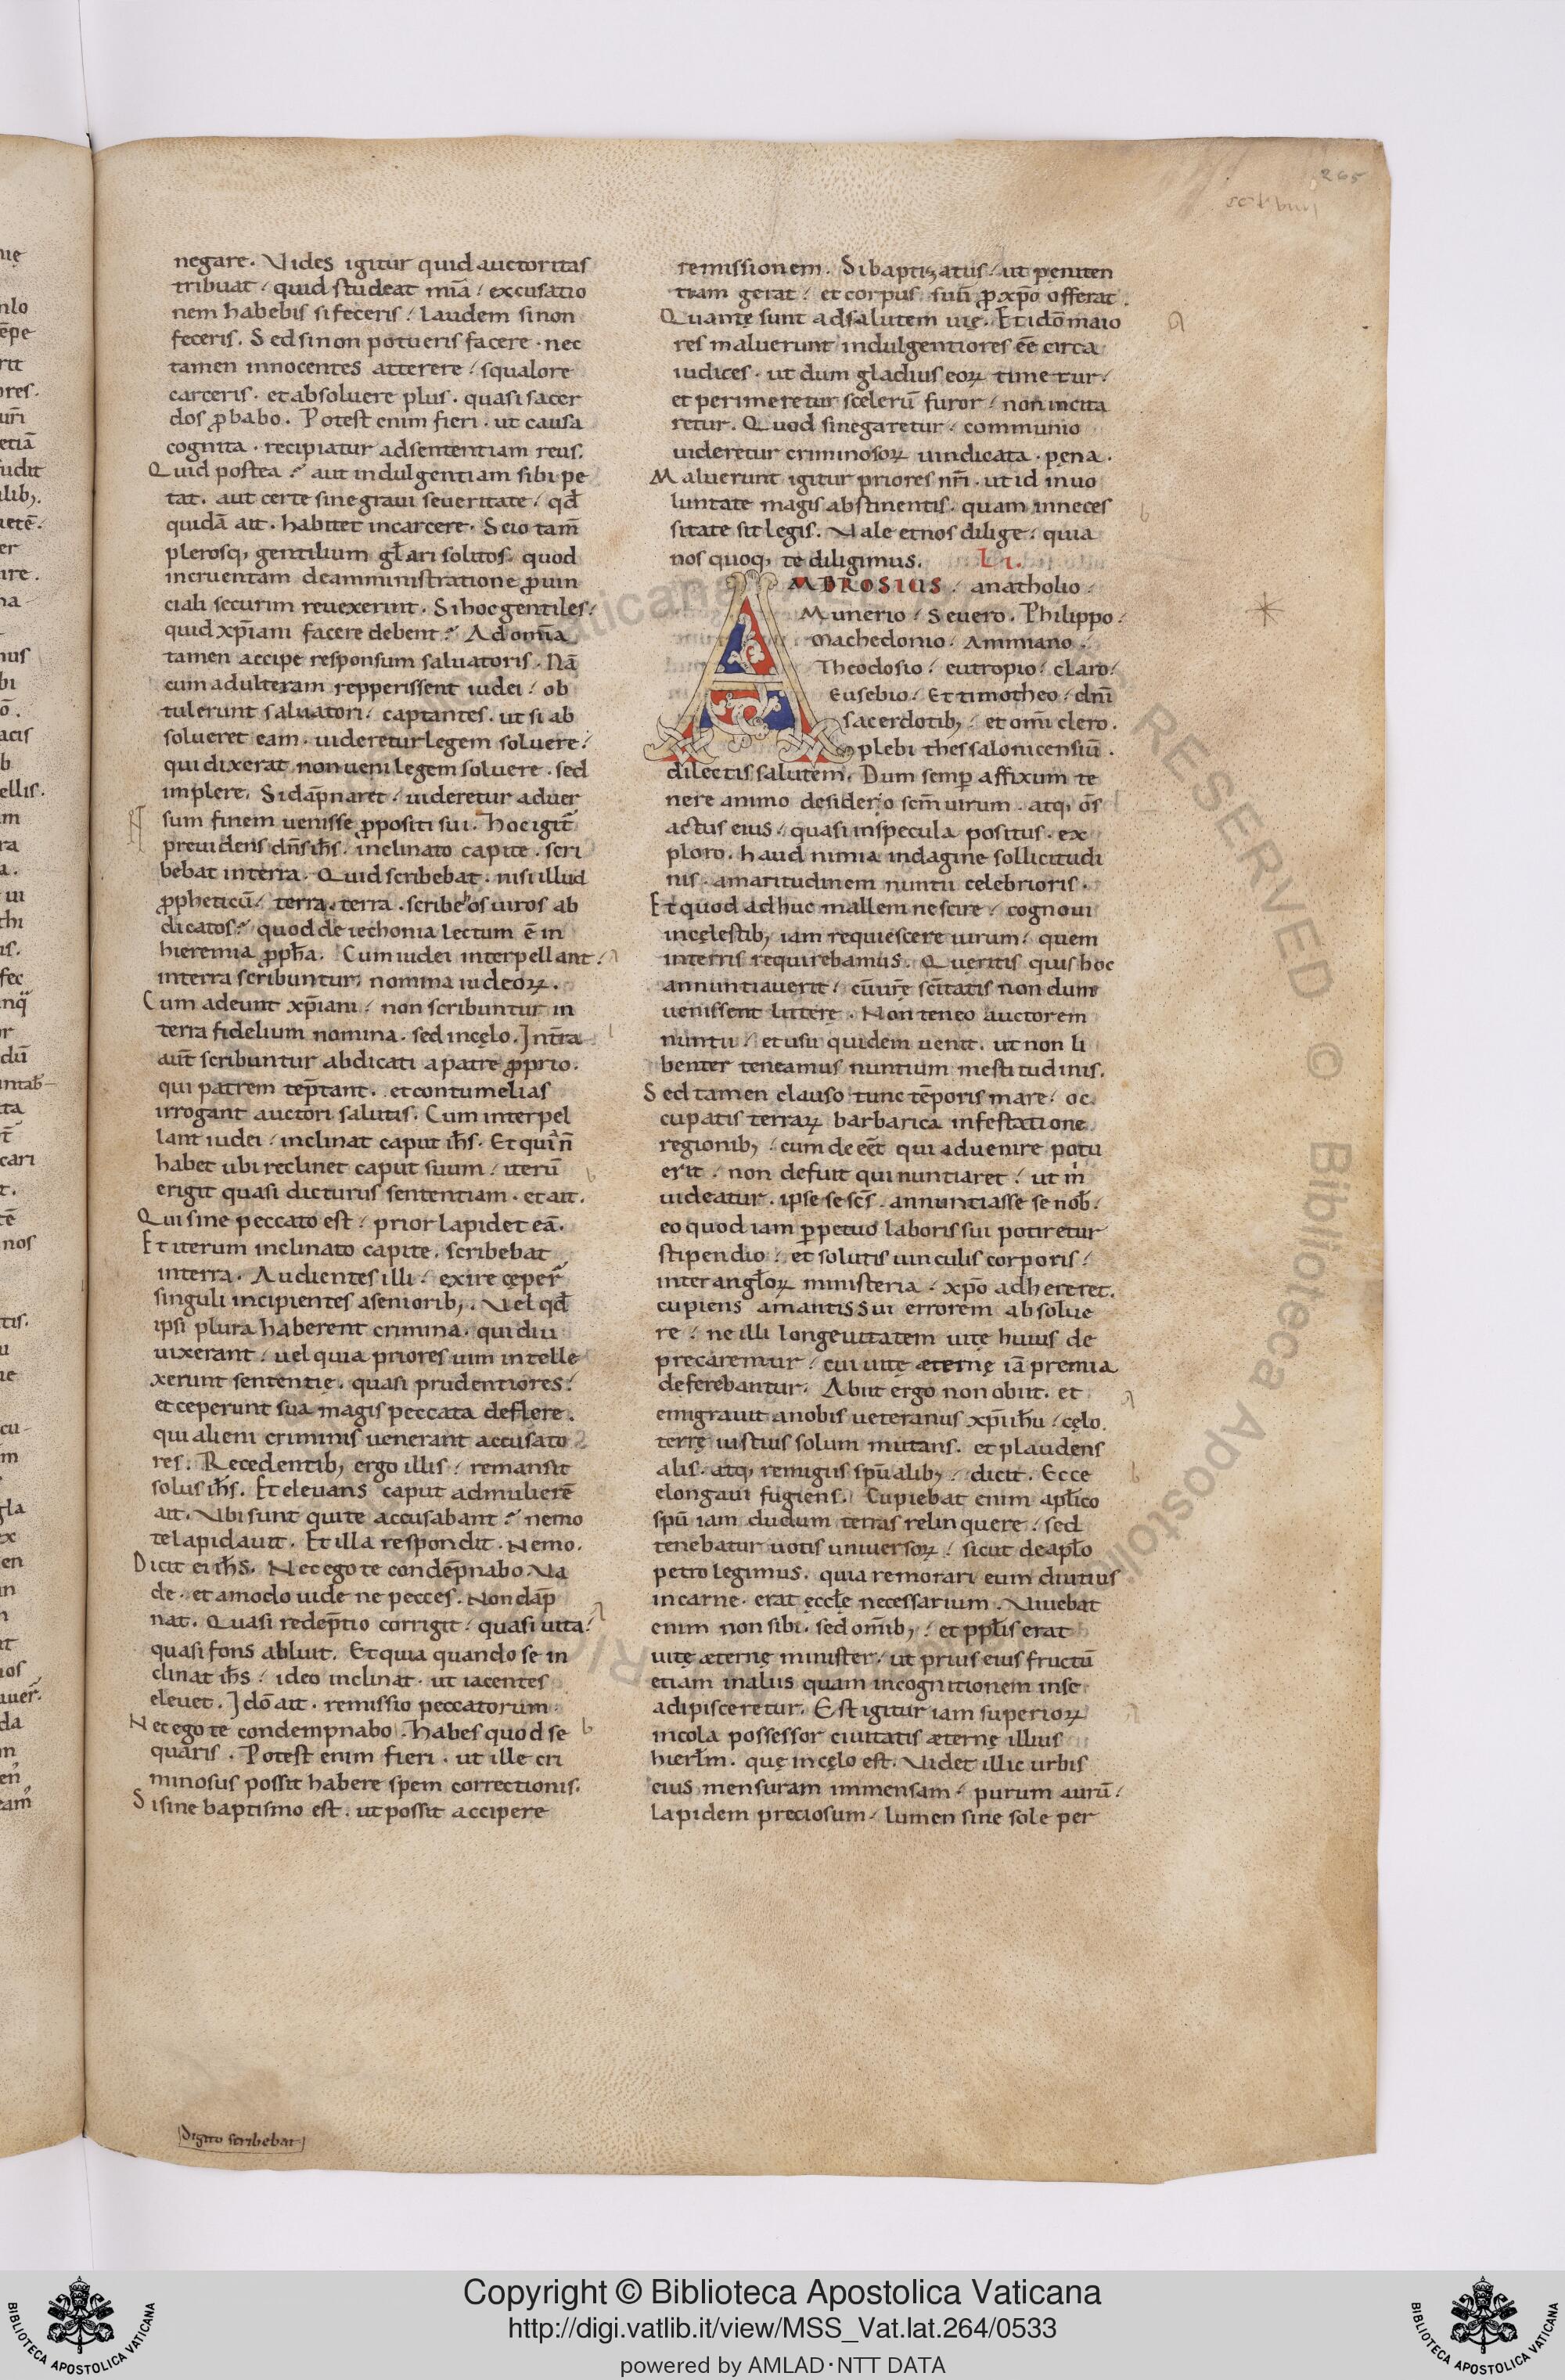 265
negare. Vides igitur quid auctoritas
tribuat / quid studeat mia̅ / excusatio
nem habebis si feceris / laudem si non
feceris. Sed si non potueris facere . nec
tamen innocentes atterere / squalore
carceris . et absoluere plus . quasi sacer
dos ꝓbabo. Potest enim fieri . ut causa
cognita . recipiatur ad sententiam reus.
Quid postea ? aut indulgentiam sibi pe
tat . aut certe sine graui seueritate / qd̅
quida̅ ait . habitet in carcere. Scio tam̅
plerosq; gentilium gl̅ari solitos . quod
incruentam de amministratione ꝓuin
ciali securim reuexerint. Si hoc gentiles /
quid xp̅iani facere debent ? Ad om̅a
tamen accipe responsum saluatoris . Na̅
cum adulteram repperissent iudei / ob
tulerunt saluatori / captantes . ut si ab
solueret eam . uideretur legem soluere /
qui dixerat non ueni legem soluere . sed
implere. Si dap̅naret / uideretur aduer
sum finem uenisse ꝓpositi sui . Hoc igit̅
preuidens dn̅s ih̅s . inclinato capite . scri
bebat in terra . Quid scribebat . nisi illud
ꝓpheticu̅ / terra . terra . scribe hos uiros ab
dicatos / quod de iechonia lectum e̅ in
hieremia ꝓph̅a. Cum iudei interpellant /
in terra scribuntur nomina iudeoꝝ .
Cum adeunt xp̅iani / non scribuntur in
terra fidelium nomina . sed in cęlo. In t̅ra
aut̅ scribuntur abdicati a patre ꝓprio.
qui patrem te̅ptant . et contumelias
irrogant auctori salutis. Cum interpel
lant iudei / inclinat caput ih̅s. Et quia n̅
habet ubi reclinet caput suum / iteru̅
erigit quasi dicturus sententiam . et ait.
Qui sine peccato est / prior lapidet ea̅.
Et iterum inclinato capite . scribebat
in terra. Audientes illi / exire cęper̅
singuli incipientes a seniorib; . Vel qd̅
ipsi plura haberent crimina . qui diu
uixerant / uel quia priores uim intelle
xerunt sententię . quasi prudentiores /
et ceperunt sua magis peccata deflere .
qui alieni criminis uenerant accusato
res. Recedentib; ergo illis / remansit
solus ih̅s. Et eleuans caput ad muliere̅
ait. Vbi sunt qui te accusabant ? nemo
te lapidauit. Et illa respondit. Nemo.
Dicit ei ih̅s. Nec ego te conde̅pnabo. Va
de . et amodo uide ne pecces. Non dap̅
nat. Quasi rede̅ptio corrigit / quasi uita /
quasi fons abluit. Et quia quando se in
clinat ih̅s / ideo inclinat . ut iacentes
eleuet. Ido̅ ait . remissio peccatorum
Nec ego te condempnabo. Habes quod se
quaris . Potest enim fieri . ut ille cri
minosus possit habere spem correctionis.
Si sine baptismo est . ut possit accipere
remissionem. Si baptizatus / ut pęniten
tiam gerat / et corpus suu̅ ꝓ xp̅o offerat .
Quantę sunt ad salutem uię. Et ido̅ maio
res maluerunt indulgentiores ee̅ circa
iudices . ut dum gladius eoꝝ timetur /
et perimeretur sceleru̅ furor / non incita
retur. Quod si negaretur / communio
uideretur criminosoꝝ uindicata . pęna .
Maluerunt igitur priores nr̅i . ut id in uo
luntate magis abstinentis . quam in neces
sitate sit legis. Vale et nos dilige / quia
nos quoq; te diligimus. LI.
AMBROSIUS / anatholio /
Munerio / Seuero. Philippo /
Machedonio. Ammiano.
Theodosio / eutropio / claro /
Eusebio / Et timotheo / dn̅i
sacerdotib; / et om̅i clero.
& plebi thessalonicensiu̅ .
dilectis salutem. Dum semp̲ affixum te
nere animo desidero scm̅ uirum . atq; om̅s
actus eius / quasi in specula positus . ex
ploro . haud nimia indagine sollicitudi
nis . amaritudinem nuntii celebrioris .
Et quod adhuc mallem nescire / cognoui
in cęlestib; iam requiescere uirum / quem
in terris requirebamus. Queritis quis hoc
annuntiauerit / cu̅ ur̅ę sc̅itatis nondum
uenissent litterę . Non teneo auctorem
nuntii / et usu quidem uenit . ut non li
benter teneamus nuntium mestitudinis.
Sed tamen clauso tunc te̅poris mare / oc
cupatis terraꝝ barbarica infestatione
regionib; / cum deee̅t qui aduenire potu
erit / non defuit qui nuntiaret / ut m̅i
uideatur . ipse se sc̅s annuntiasse se nob̅ /
eo quod iam p̲petuo laboris sui potiretur
stipendio / et solutis uinculis corporis /
inter angl̅oꝝ ministeria / xp̅o adhereret.
cupiens amantis sui errorem absolue
re / ne illi longeuitatem uitę huius de
precaremur / cui uitę æternę ia̅ premia
deferebantur. Abiit ergo non obiit . et
emigrauit a nobis ueteranus xp̅i ih̅u / cęlo
terrę istius solum mutans . et plaudens
alis . atq; remigiis sp̅ualib; / dicit . Ecce
elongaui fugiens. Cupiebat enim apl̅ico
spu̅ iam dudum terras relinquere / sed
tenebatur uotis uniuersoꝝ / sicut de apl̅o
petro legimus . quia remorari eum diutius
in carne . erat ęccl̅ę necessarium . Viuebat
enim non sibi . sed om̅ib; / et ppl̅is erat
uitę æternę minister / ut prius eius fructu̅
etiam in aliis quam in cognitionem in se
adipisceretur. Est igitur iam superioꝝ
incola possessor ciuitatis æternę illius
hierl̅m . quę in cęlo est. Videt illic urbis
eius mensuram immensam / purum auru̅ /
lapidem preciosum / lumen sine sole per
digito scribebat
Copyright © Biblioteca Apostolica Vaticana
http://digi.vatlib.it/view/MSS_Vat.lat.264/0533
powered by AMLAD·NTT DATA
BIBLIOTECA APOSTOLICA VATICANA
BIBLIOTECA APOSTOLICA VATICANA